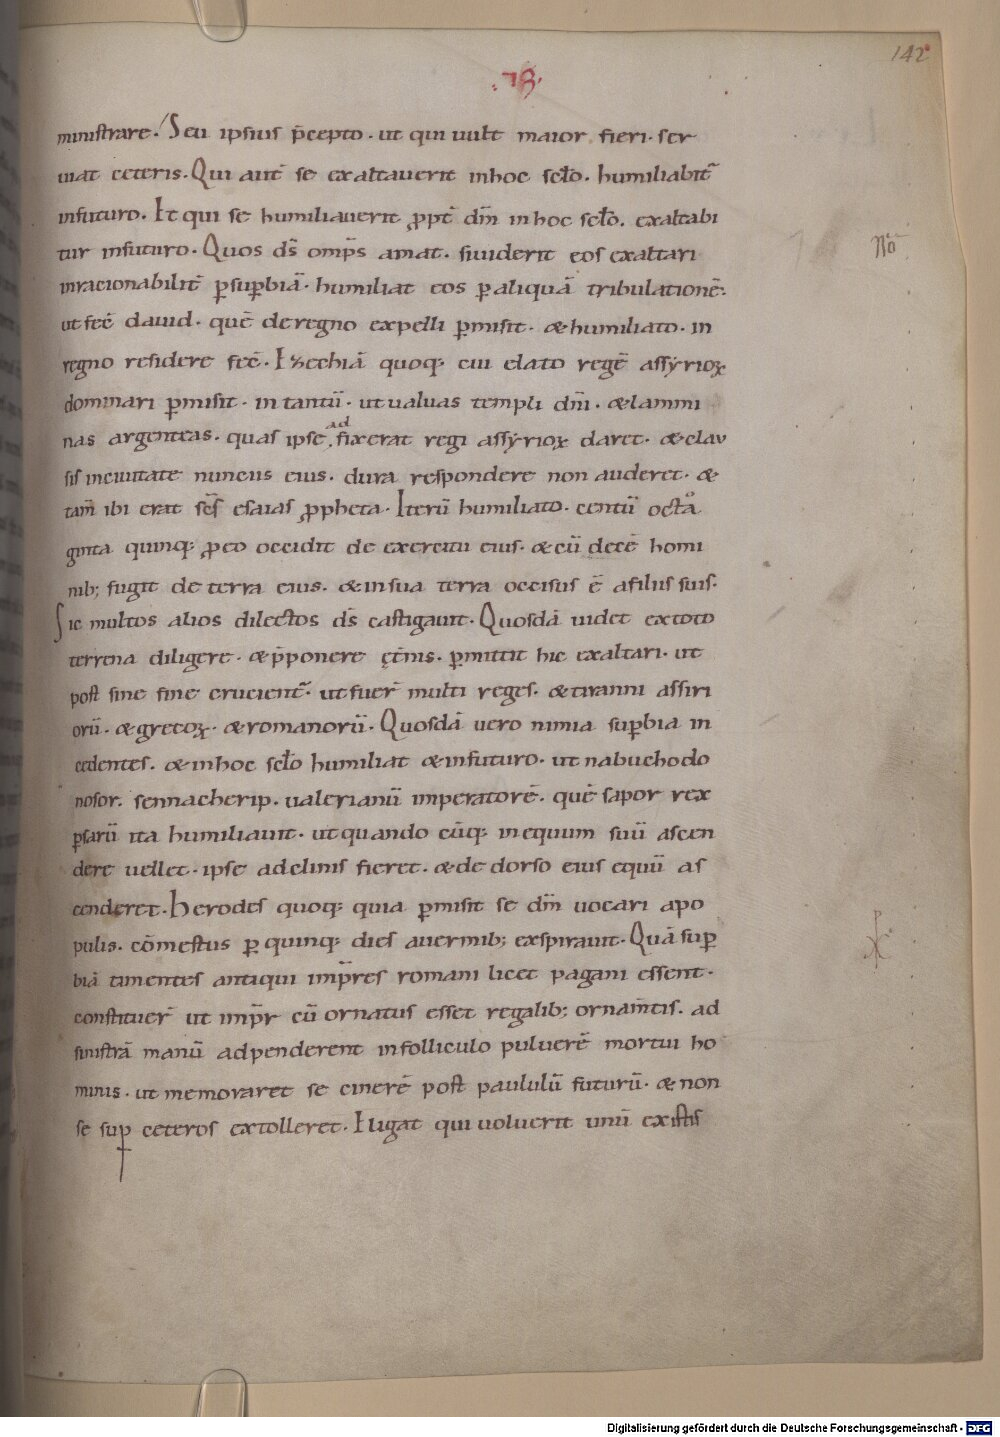 142
ministrare. Seu ipsius p̄cepto. ut qui uult maior fieri. ser
uiat ceteris. Qui aut̄ se exaltauerit inhoc scl̄o. humiliabit᷑
infuturo. Et qui se humiliauerit ꝓpt̄ dm̄ inhoc scl̄o. exaltabi
tur infuturo. Quos ds̄ omp̄s amat. siuiderit eos exaltari
inracionabilit̄ ꝑsuꝑbiā. humiliat eos ꝑaliquā tribulationē.
ut fec̄ dauid. quē deregno expelli ꝑmisit. &humiliato. in
regno residere fec̄. Ezechiā quoq; cui elato regē assyrioꝝ
dominari ꝑmisit. intantū. ut ualuas templi dn̄i. &lammi
nas argenteas. quas ipse adfixerat regi assyrioꝝ daret. &clau
sis inciuitate nuncius eius. dura respondere non auderet. &
tam̄ ibi erat sc̄s esaias ꝓpheta. Iterū humiliato. centū octo
ginta quinq; ꝓeo occidit de exercitu eius. &cū decē homi
nib; fugit de terra eius. &insua terra occisus ē afiliis suis.
Sic multos alios dilectos ds̄ castigauit. Quosdā uidet extoto
terrena diligere. &p̄ponere et̄nis. ꝑmittit hic exaltari. ut
post sine fine crucient᷑. ut fuer̄ multi reges. &tiranni assiri
orū. &grecoꝝ. &romanorū. Quosdā uero nimia suꝑbia in
cedentes. &inhoc scl̄o humiliat &infuturo. ut nabuchodo
nosor. sennacherip. ualerianū imperatorē. quē sapor rex
ꝑsarū ita humiliauit. ut quando cūq; inequum suū ascen
dere uellet. ipse adclinis fieret. &de dorso eius equū as
cenderet. Herodes quoq; quia ꝑmisit se dm̄ uocari apo
pulis. cōmestus ꝑ quinq; dies auermib; exspirauit. Quā suꝑ
biā timentes antiqui imp̄res romani licet pagani essent.
constituer̄ ut imp̄r cū ornatus esset regalib; ornam̄tis. ad
sinistrā manū adpenderent infolliculo puluerē mortui ho
minis. ut memoraret se cinerē post paululū futurū. &non
se suꝑ ceteros extolleret. Legat qui uoluerit unū existis
Digitalisierung gefördert durch die Deutsche Forschungsgemeinschaft - DFG